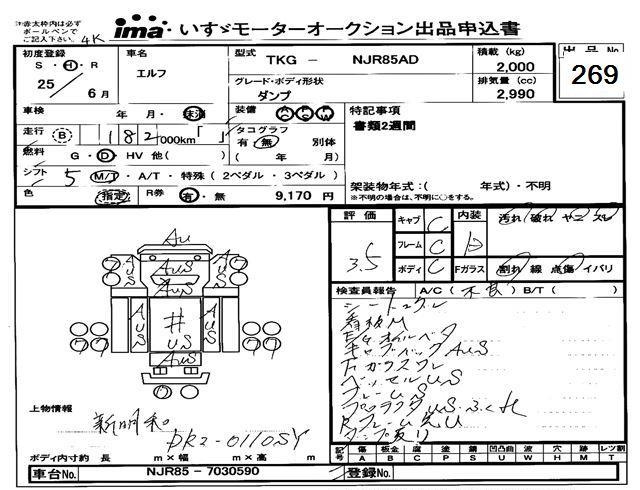 ※赤太枠内は必ず
ボールペンで
ご記入下さい。 4K
ima いすゞモーターオークション出品申込書
初度登録 車名 型式 TKG - NJR85AD 積載 (kg) 2,000 出品No. 269
S・H・R 25 6月 エルフ グレード・ボディ形状 ダンプ 排気量 (cc) 2,990
車検 年 月・抹消 装備 AC PS PW 特記事項
走行 B 182 000km「 」 タコグラフ 有・無 別体 書類2週間
燃料 G・D・HV 他( ) ( 年 月)
シフト 5 M/T・A/T・特殊 (2ペダル・3ペダル) 架装物年式:( 年式)・不明
色 指定 R券 有・無 9,170 円 ※不明の場合は、不明に○をする。
評価 3.5 キャブ C 内装 D 汚れ 破れ ヤニ スレ
フレーム C
ボディ C Fガラス 割れ 線 点傷 イバリ
検査員報告 A/C(不良) B/T( )
AU
AUS
AUS
AUS
AUS
AUS
井 US
AUS
看板M
キャブバック AUS
Fガラスワレ
ベッセルUS
フレームUS
上物情報 新明和
DR2-0110SY
ボディ内寸 約 長 m×幅 m×高 m
記号 傷 A 板金 B 腐 C 塗 P 錆 S 凹凸曲 U 波 W 穴 H 跡 M レツ割 T
車台No. NJR85 - 7030590 登録No.